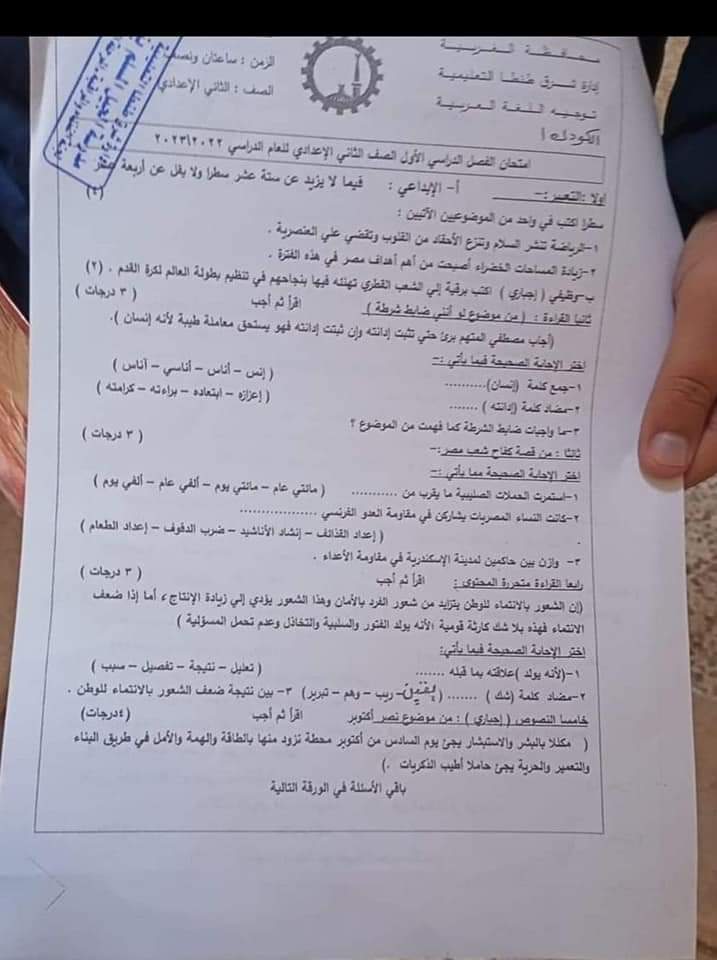 محافظة الغربية
إدارة شرق طنطا التعليمية
توجيه اللغة العربية
الكود ا
الزمن : ساعتان ونصف
الصف : الثاني الإعدادي
امتحان الفصل الدراسي الأول الصف الثاني الإعدادي للعام الدراسي ٢٠٢٢\٢٠٢٣
أولا :التعبير :- أ- الإبداعي : فيما لا يزيد عن ستة عشر سطرا ولا يقل عن أربعة عشر
سطرا اكتب في واحد من الموضوعين الآتيين :
١-الرياضة تنشر السلام وتنزع الأحقاد من القلوب وتقضي علي العنصرية .
٢-زيادة المساحات الخضراء أصبحت من أهم أهداف مصر في هذه الفترة .
ب-وظيفي ( إجباري ) اكتب برقية إلي الشعب القطري تهنئه فيها بنجاحهم في تنظيم بطولة العالم لكرة القدم . (٢)
ثانيا القراءة : ( من موضوع لو أنني ضابط شرطة ) اقرأ ثم أجب ( ٣ درجات )
(أجاب مصطفي المتهم برئ حتي تثبت إدانته وإن ثبتت إدانته فهو يستحق معاملة طيبة لأنه إنسان ).
إختر الإجابة الصحيحة فيما يأتي :-
١-جمع كلمة (إنسان)........... ( إنس – أناس – أناسي – آناس )
٢-مضاد كلمة (إدانته ) ....... ( إعزازه – ابتعاده – براءته – كرامته )
٣-ما واجبات ضابط الشرطة كما فهمت من الموضوع ؟
ثالثا : من قصة كفاح شعب مصر :- ( ٣ درجات )
إختر الإجابة الصحيحة مما يأتي :-
١-استمرت الحملات الصليبية ما يقرب من ........... ( مائتي عام – مائتي يوم – ألفي عام – ألفي يوم )
٢-كانت النساء المصريات يشاركن في مقاومة العدو الفرنسي .................
( إعداد القذائف – إنشاد الأناشيد – ضرب الدفوف – إعداد الطعام )
٣- وازن بين حاكمين لمدينة الإسكندرية في مقاومة الأعداء .
رابعا القراءة متحررة المحتوى : اقرأ ثم أجب ( ٣ درجات )
(إن الشعور بالانتماء للوطن يتزايد من شعور الفرد بالأمان وهذا الشعور يؤدي إلي زيادة الإنتاج ، أما إذا ضعف
الانتماء فهذه بلا شك كارثة قومية لأنه يولد الفتور والسلبية والتخاذل وعدم تحمل المسؤلية )
إختر الإجابة الصحيحة فيما يأتي:
١-(لأنه يولد )علاقته بما قبله ....... ( تعليل – نتيجة – تفصيل – سبب )
٢-مضاد كلمة (شك ) ....... ( يقين – ريب – وهم – تبرير) ٣- بين نتيجة ضعف الشعور بالانتماء للوطن .
خامسا النصوص ( إجباري ) : من موضوع نصر أكتوبر اقرأ ثم أجب (٤درجات)
( مكللا بالبشر والاستبشار يجئ يوم السادس من أكتوبر محطة نزود منها بالطاقة والهمة والأمل في طريق البناء
والتعمير والحرية يجئ حاملا أطيب الذكريات .)
باقي الأسئلة في الورقة التالية